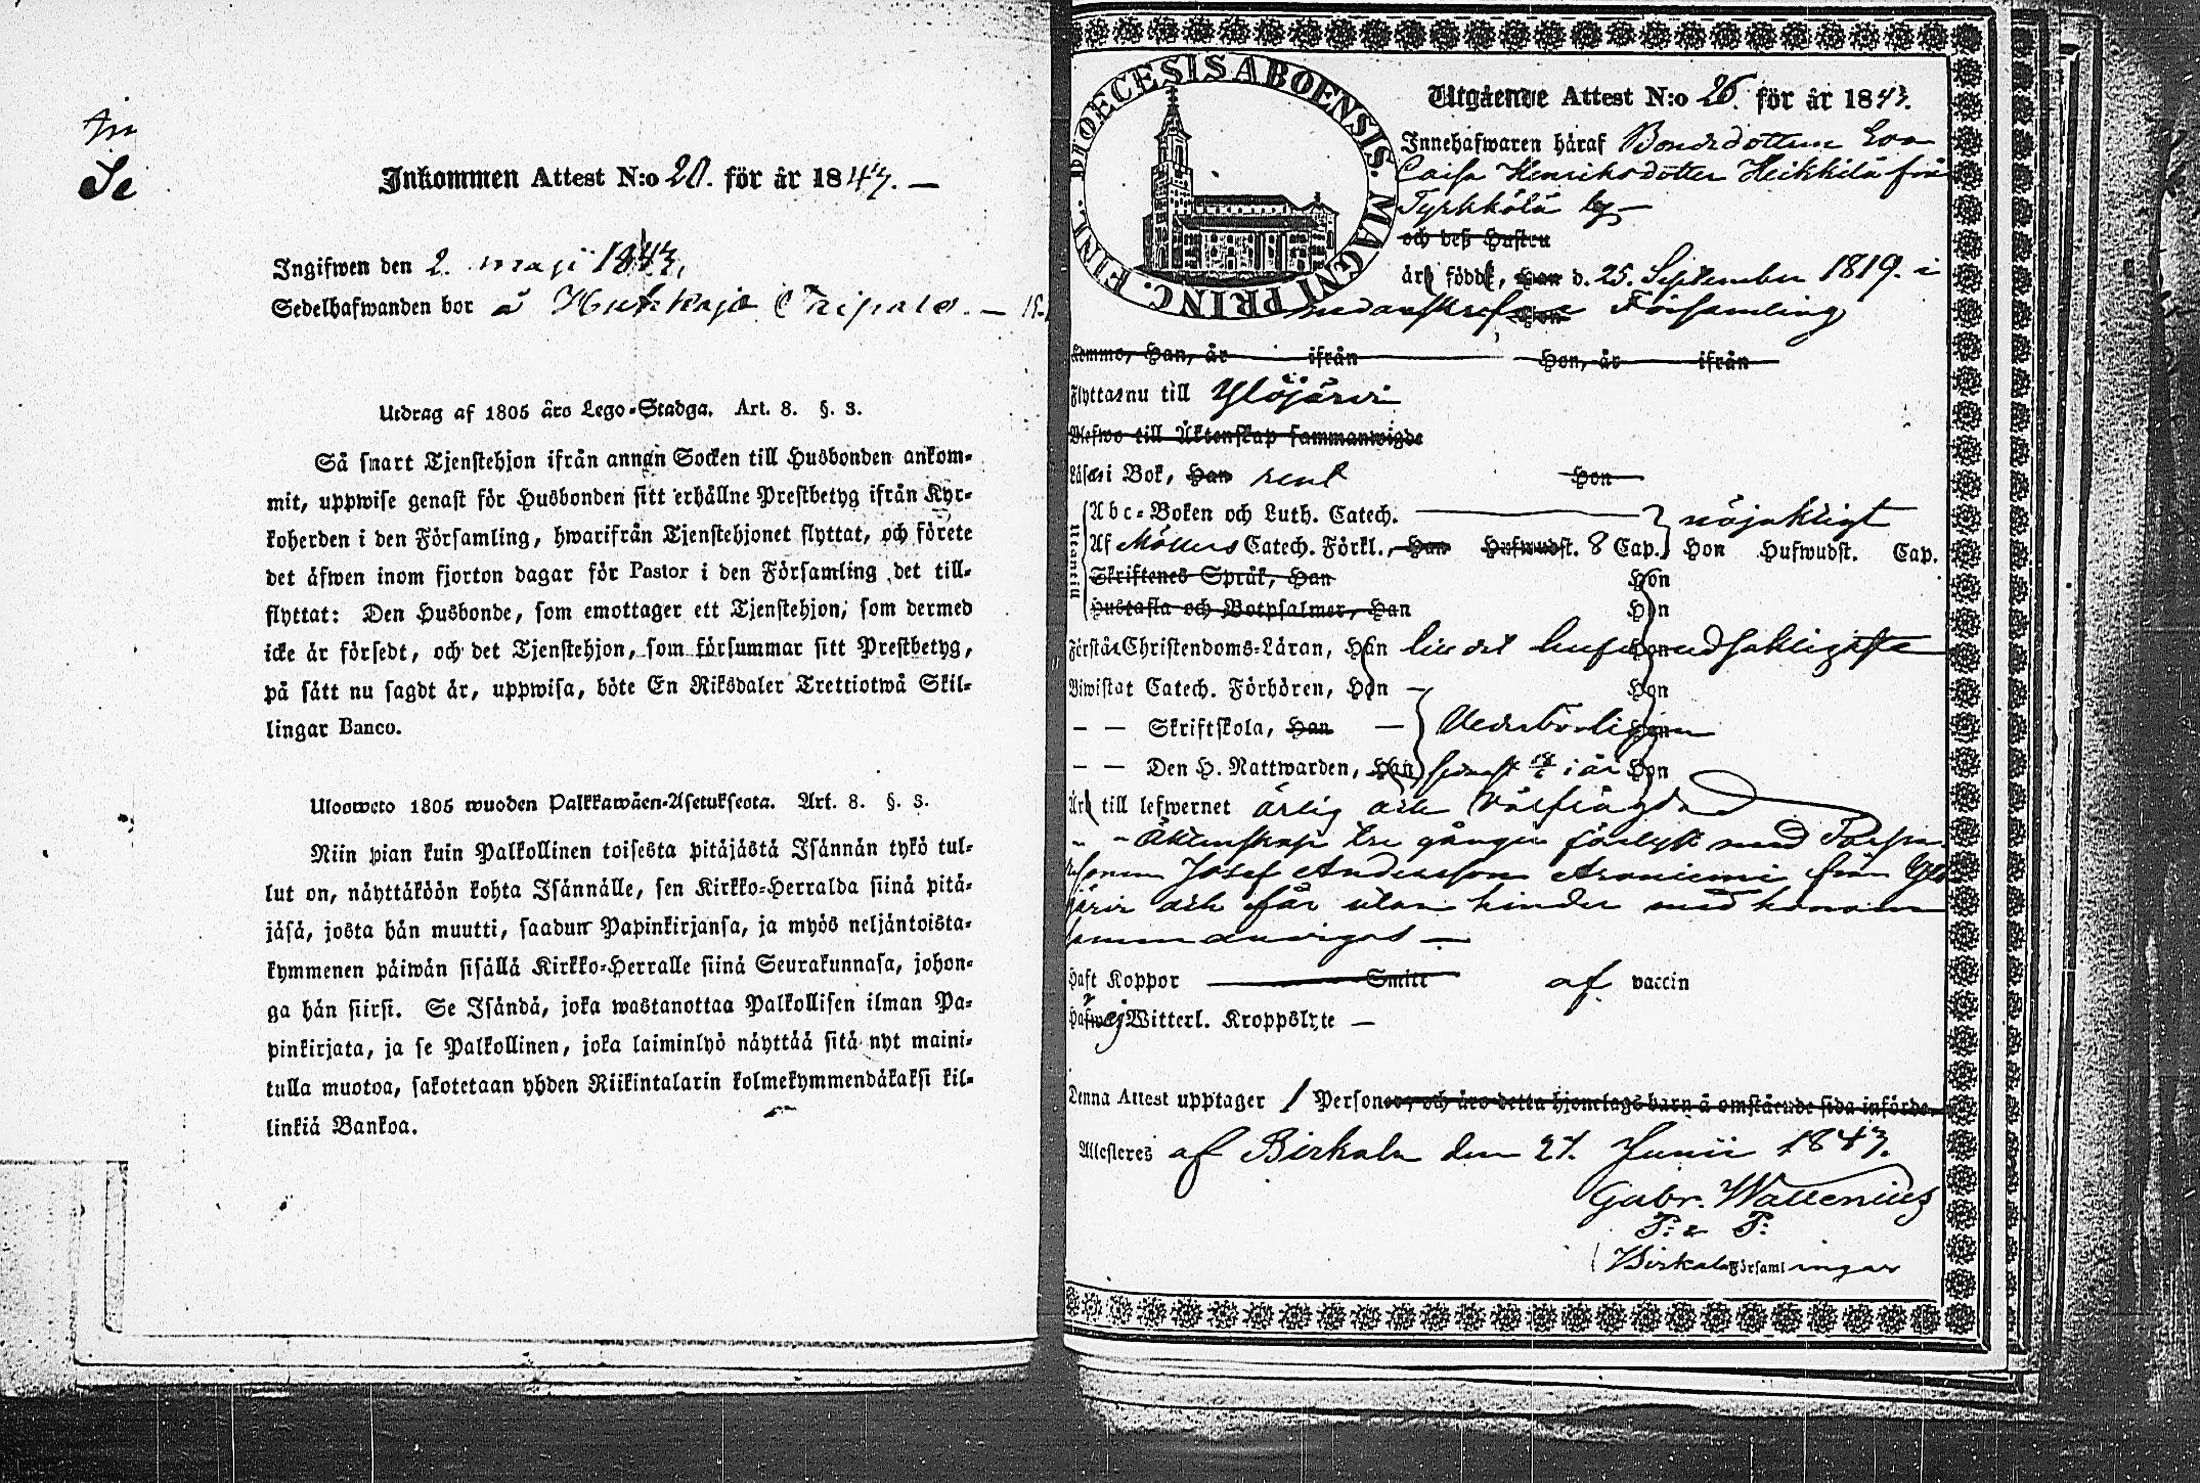 Jn
Se
Inkommen Attest N:o 20. för år 1843. —
Ingifwen den 2. maji 1843.
Sedelhafwanden bor å
Utdrag af 1805 års Lego-Stadga. Art. 8. §. 3.
Så snart Tjenstehjon ifrån annan Socken till Husbonden ankom-
mit, uppwise genast för Husbonden sitt erhållne Prestbetyg ifrån Kyr-
koherden i den Församling, hwarifrån Tjenstehjonet flyttat, och förete
det äfwen inom fjorton dagar för Pastor i den Församling det till-
flyttat: Den Husbonde, som emottager ett Tjenstehjon, som dermed
icke är försedt, och det Tjenstehjon, som försummar sitt Prestbetyg,
på sätt nu sagdt är, uppwisa, böte En Riksdaler Trettiotwå Skil-
lingar Banco.
Ulosweto 1805 wuoden Palkkawäen-Asetuksesta. Art. 8. §. 3.
Niin pian kuin Palkollinen toisesta pitäjästä Isännän tykö tul-
lut on, näyttäköön kohta Isännälle, sen Kirkko-Herralda siinä pitä-
jäsä, josta hän muutti, saadun Papinkirjansa, ja myös neljäntoista-
kymmenen päiwän sisällä Kirkko-Herralle siinä Seurakunnasa, johon-
ga hän siirsi. Se Isändä, joka wastanottaa Palkollisen ilman Pa-
pinkirjata, ja se Palkollinen, joka laiminlyö näyttää sitä nyt maini-
tulla muotoa, sakotetaan yhden Riikintalarin kolmekymmendäkaksi kil-
linkiä Bankoa.
DIOECESIS ABOENSIS. MAGNI PRINC. FINL.
Utgående Attest N:o 26. för år 1843.
Innehafwaren häraf Bondedottern Eva
Caisa Henriksdotter Heikkilä från
Tyrkkölä by —
och deß Hustru
äro födde, Han d. 25. September 1819. i
nedanskrefne Hon Församling
Komme, Han, år ifrån Hon, år ifrån
Flyttar nu till Ylöjärvi
Blefwo till Äktenskap sammanwigde
Läsa i Bok, Han rent Hon
Utantill
Abc-Boken och Luth. Catech. nöjaktigt
Af Möllers Catech. Förkl., Han Hufwudst. 8 Cap. Hon Hufwudst. Cap.
Skriftenes Språk, Han Hon
Hustafla och Botpsalmer, Han Hon
Förstår Christendoms-Läran, Han till det hufvudsakligaste Hon
Biwistat Catech. Förhören, Han — Hon
— — Skriftskola, Han — Vederbörligen Hon
— — Den H. Nattwarden, Han senast i år Hon
Är till lefwernet ärlig och välfrägdad
- - Äktenskap tre gånger förlyst med Torpare-
sonen Josef Andersson Aroniemi från Ylö-
järvi och får utan hinder med honom
sammanvigas —
Haft Koppor Smitt af vaccin
Hafwa ej Witterl. Kroppslyte —
Denna Attest upptager 1 Personer, och äro detta hjonelags barn å omstående sida införde.
Attesteres af Birkala den 27. Junii 1843.
Gabr. Wallenius
P: & P:
Birkala Församlingar